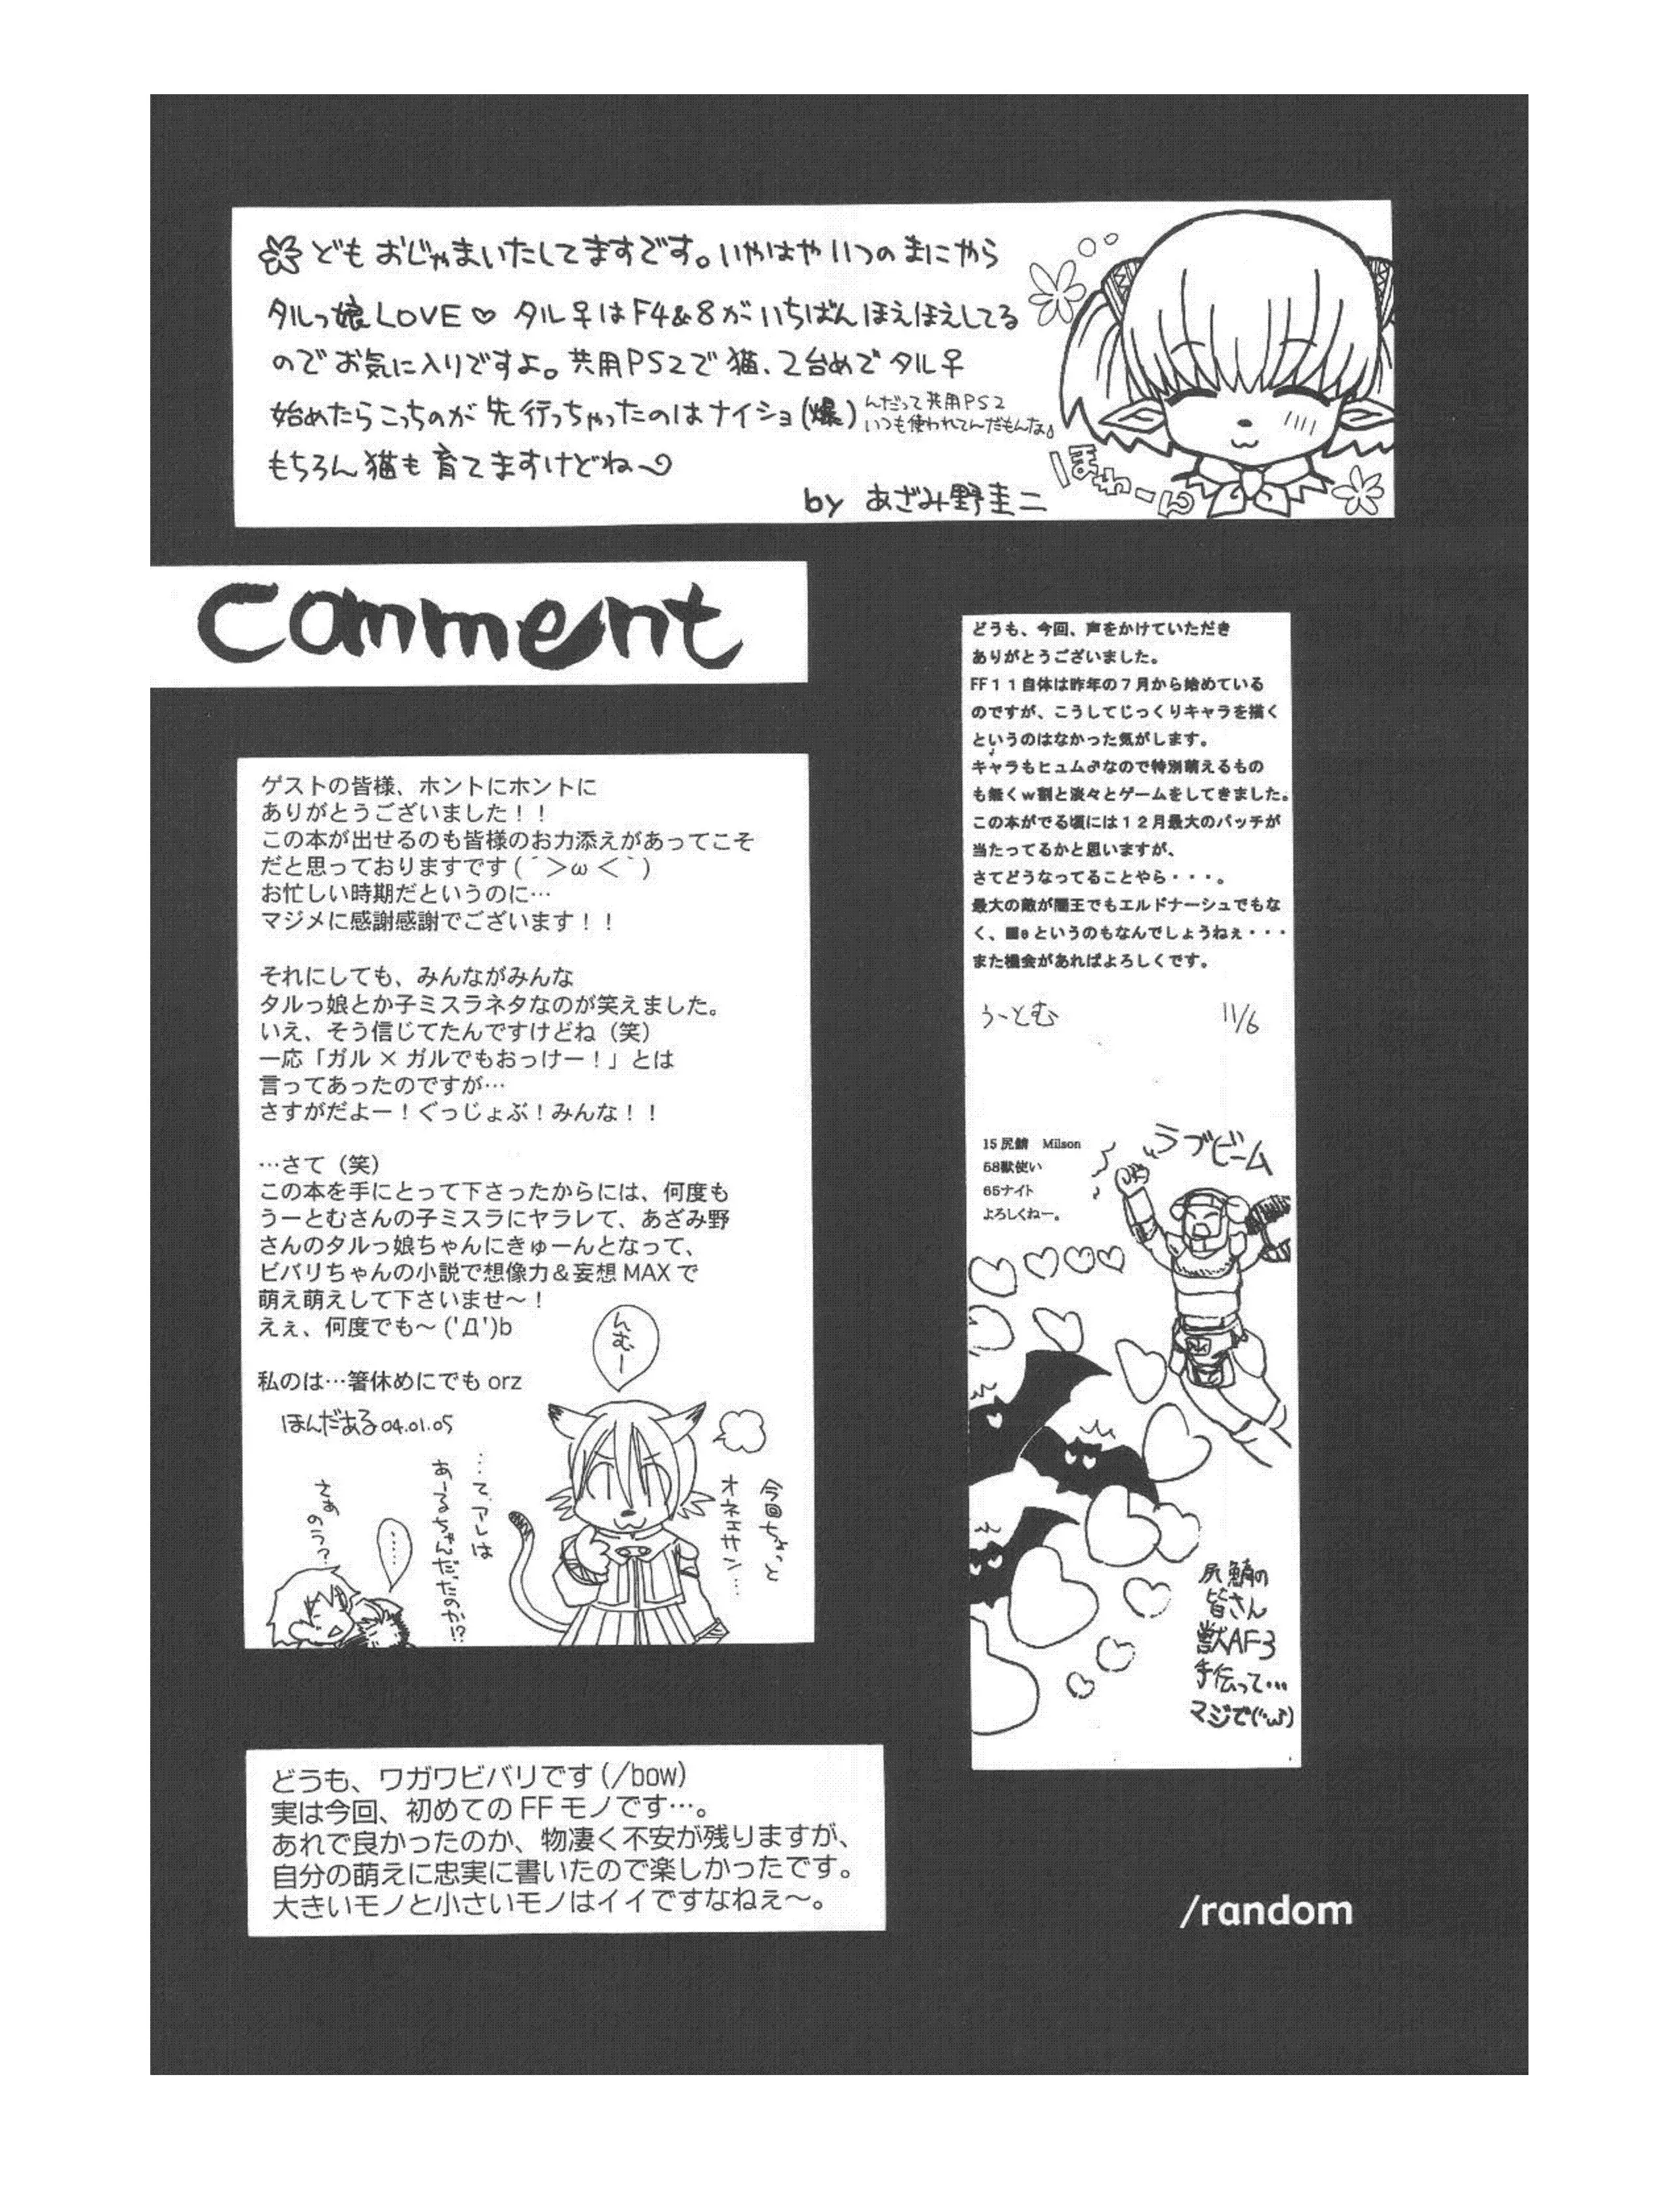 どもおじゃまいたしてますです。いやはやいつのまにやら
タルっ娘LOVE♡ タル♀はF4&8がいちばんほえほえしてる
のでお気に入りですよ。共用PS2で猫、2台めでタル♀
始めたらこっちのが先行っちゃったのはナイショ(爆)
んだって共用PS2
いつも使われてんだもんな♪
もちろん猫も育てますけどね〜
by あざみ野圭二
ほわーん
Comment
どうも、今回、声をかけていただき
ありがとうございました。
FF11自体は昨年の7月から始めている
のですが、こうしてじっくりキャラを描く
というのはなかった気がします。
キャラもヒュム♂なので特別萌えるもの
も無くw割と淡々とゲームをしてきました。
この本がでる頃には12月最大のパッチが
当たってるかと思いますが、
さてどうなってることやら・・・。
最大の敵が闇王でもエルドナーシュでもな
く、■eというのもなんでしょうねぇ・・・
また機会があればよろしくです。
うーとむ 11/6
15尻鯖 Milson
58獣使い
65ナイト
よろしくねー。
ラブビーム
尻鯖の
皆さん
獣AF3
手伝って…
マジで(´・ω・)
ゲストの皆様、ホントにホントに
ありがとうございました!!
この本が出せるのも皆様のお力添えがあってこそ
だと思っておりますです(´＞ω＜｀)
お忙しい時期だというのに…
マジメに感謝感謝でございます!!
それにしても、みんながみんな
タルっ娘とか子ミスラネタなのが笑えました。
いえ、そう信じてたんですけどね(笑)
一応「ガル×ガルでもおっけー!」とは
言ってあったのですが…
さすがだよー!ぐっじょぶ!みんな!!
…さて(笑)
この本を手にとって下さったからには、何度も
うーとむさんの子ミスラにヤラレて、あざみ野
さんのタルっ娘ちゃんにきゅーんとなって、
ビバリちゃんの小説で想像力&妄想MAXで
萌え萌えして下さいませ〜!
えぇ、何度でも〜('Д')b
私のは…箸休めにでもorz
ほんだある04.01.05
んむー
今回ちょっと
オネエサン…
…て、アレは
あーるちゃんだったのか!?
……
さあのう?
どうも、ワガワビバリです(/bow)
実は今回、初めてのFFモノです…。
あれで良かったのか、物凄く不安が残りますが、
自分の萌えに忠実に書いたので楽しかったです。
大きいモノと小さいモノはイイですなねぇ〜。
/random